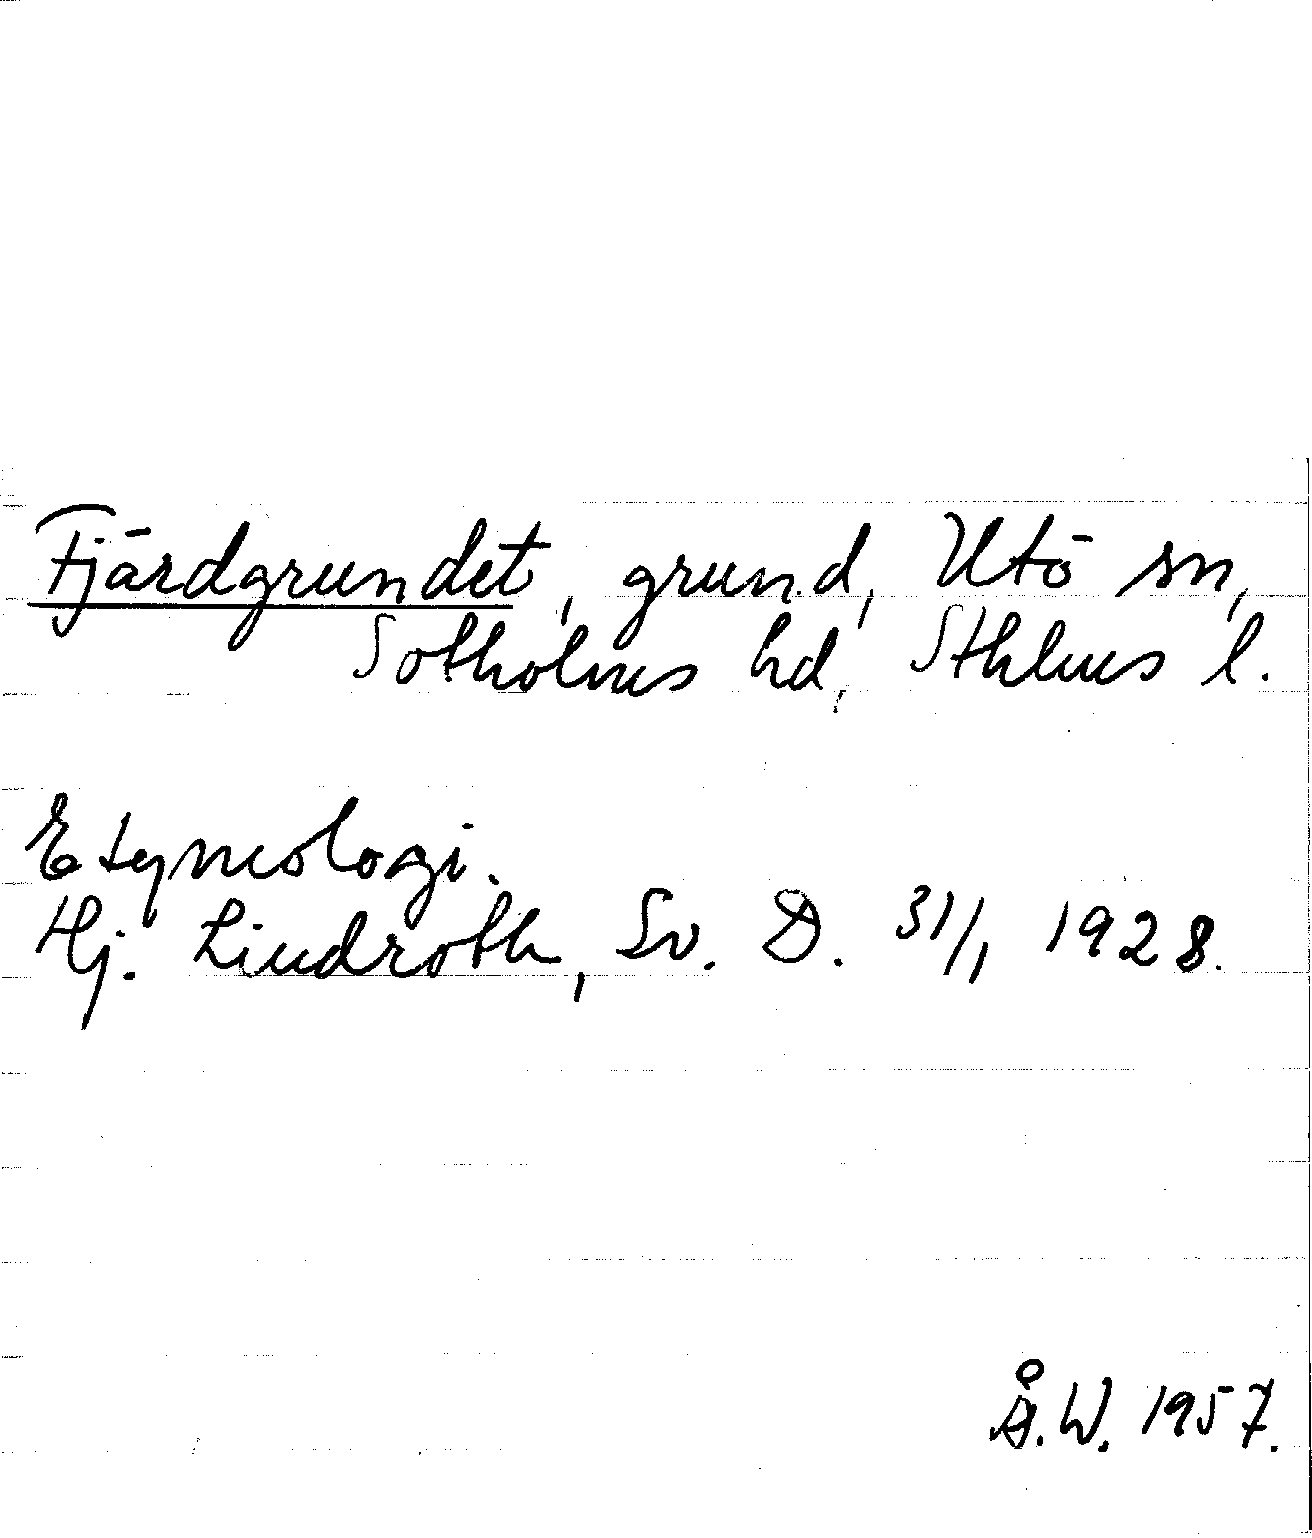 Fjärdgrundet, grund, Utö sn,
Sotholms hd, Sthlms l.
Etymologi.
Hj. Lindroth, Sv. D. 31/1 1928.
Å.W. 1957.